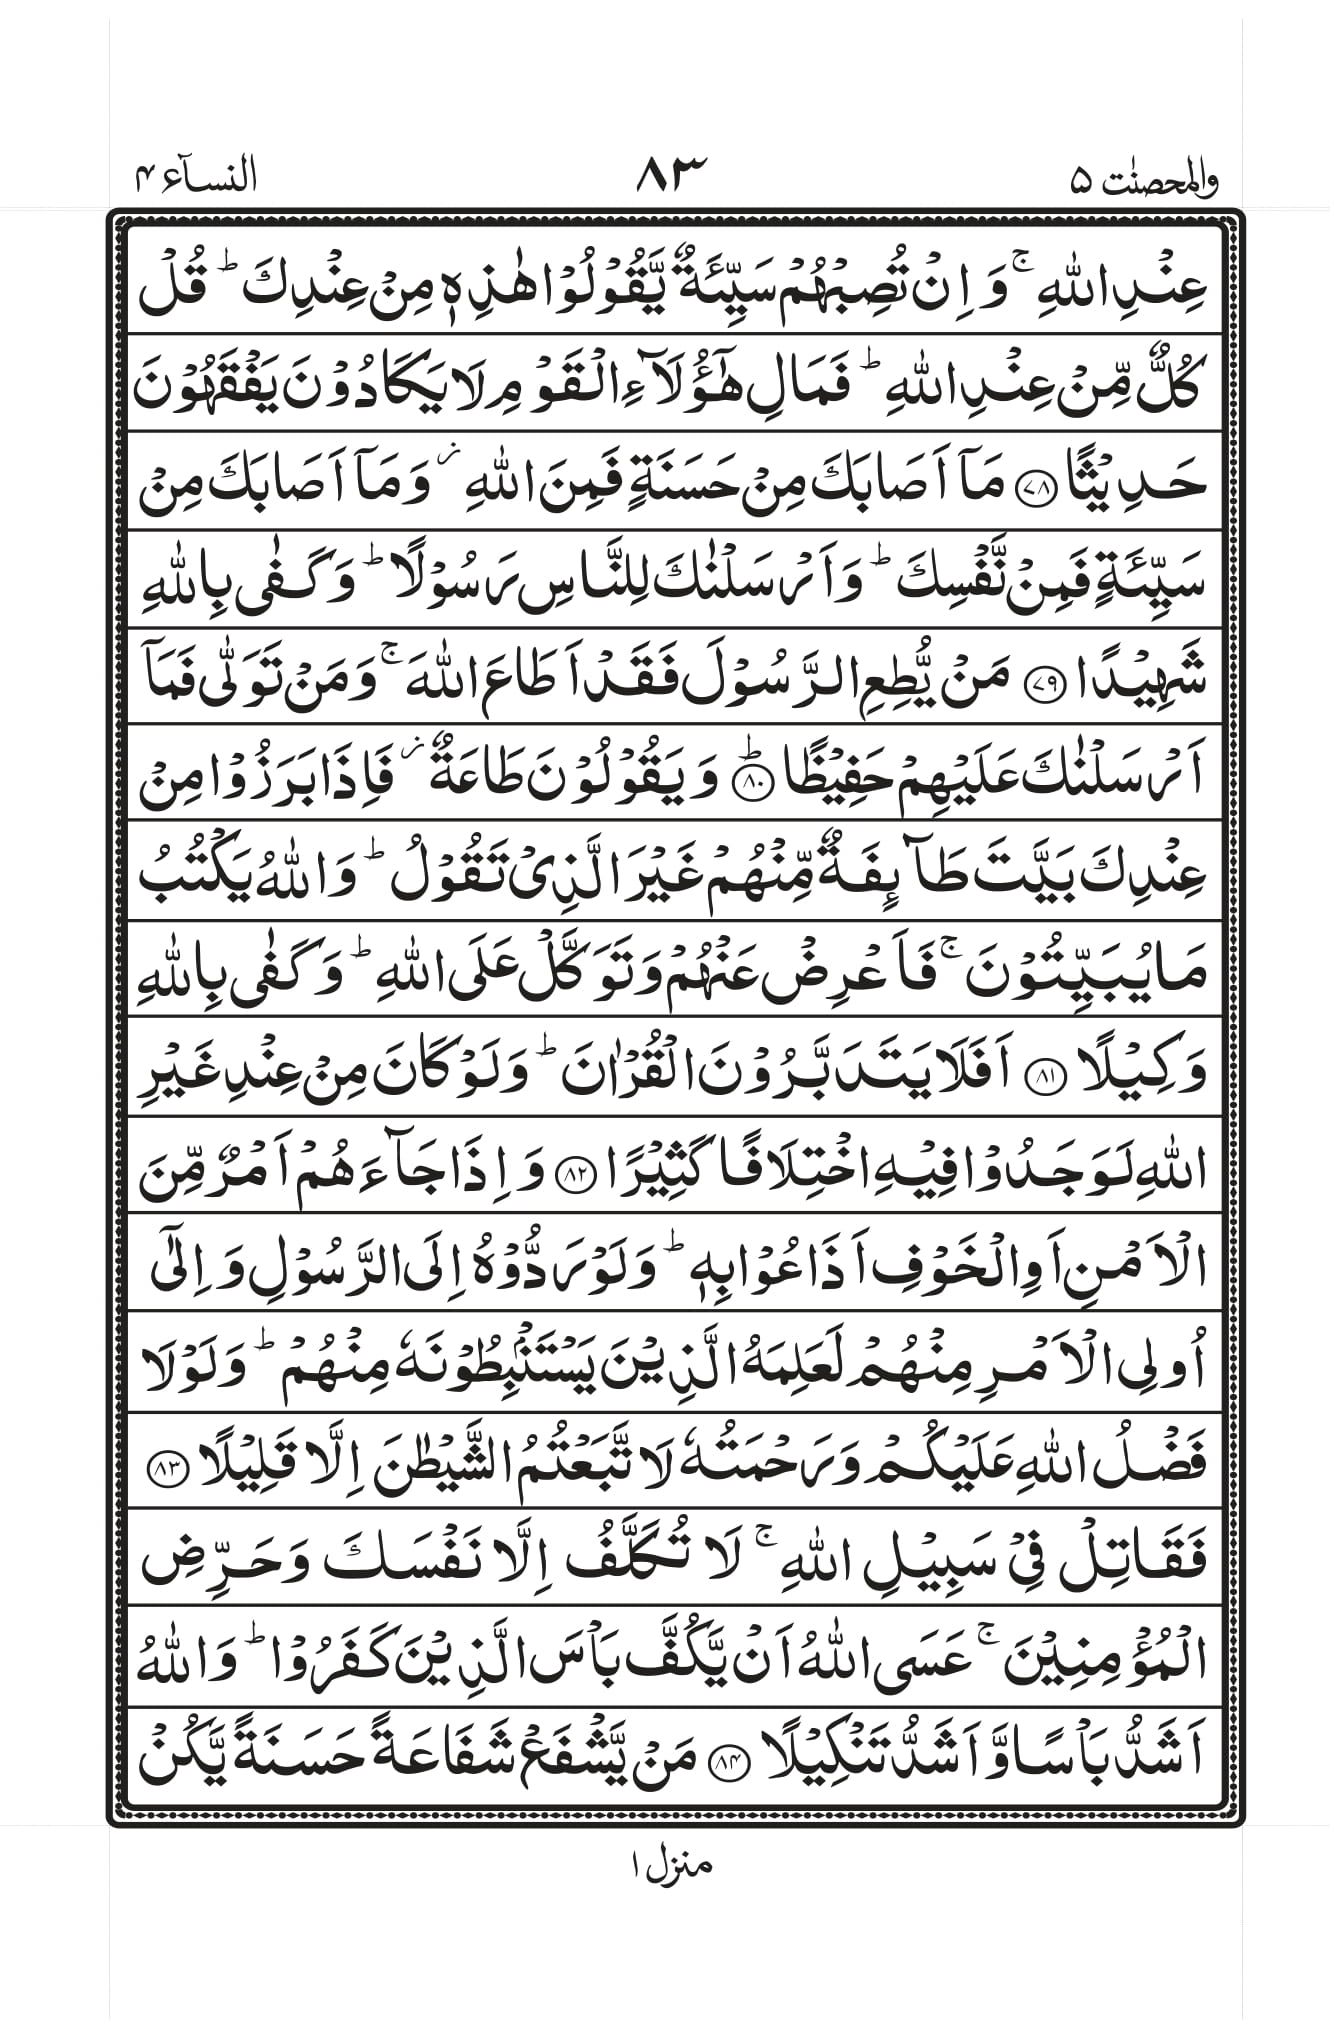 والمحصنٰت ۵
۸۳
النسآء ۴
عِنۡدِ اللّٰهِ ۚ وَ اِنۡ تُصِبۡهُمۡ سَيِّئَةٌ يَّقُوۡلُوۡا هٰذِهٖ مِنۡ عِنۡدِكَ ؕ قُلۡ
كُلٌّ مِّنۡ عِنۡدِ اللّٰهِ ؕ فَمَالِ هٰٓؤُلَآءِ الۡقَوۡمِ لَا يَكَادُوۡنَ يَفۡقَهُوۡنَ
حَدِيۡثًا ﴿۷۸﴾ مَاۤ اَصَابَكَ مِنۡ حَسَنَةٍ فَمِنَ اللّٰهِ ؗ وَ مَاۤ اَصَابَكَ مِنۡ
سَيِّئَةٍ فَمِنۡ نَّفۡسِكَ ؕ وَ اَرۡسَلۡنٰكَ لِلنَّاسِ رَسُوۡلًا ؕ وَ كَفٰى بِاللّٰهِ
شَهِيۡدًا ﴿۷۹﴾ مَنۡ يُّطِعِ الرَّسُوۡلَ فَقَدۡ اَطَاعَ اللّٰهَ ۚ وَ مَنۡ تَوَلّٰى فَمَاۤ
اَرۡسَلۡنٰكَ عَلَيۡهِمۡ حَفِيۡظًا ﴿ؕ۸۰﴾ وَ يَقُوۡلُوۡنَ طَاعَةٌ ؗ فَاِذَا بَرَزُوۡا مِنۡ
عِنۡدِكَ بَيَّتَ طَآئِفَةٌ مِّنۡهُمۡ غَيۡرَ الَّذِىۡ تَقُوۡلُ ؕ وَ اللّٰهُ يَكۡتُبُ
مَا يُبَيِّتُوۡنَ ۚ فَاَعۡرِضۡ عَنۡهُمۡ وَ تَوَكَّلۡ عَلَى اللّٰهِ ؕ وَ كَفٰى بِاللّٰهِ
وَكِيۡلًا ﴿۸۱﴾ اَفَلَا يَتَدَبَّرُوۡنَ الۡقُرۡاٰنَ ؕ وَ لَوۡ كَانَ مِنۡ عِنۡدِ غَيۡرِ
اللّٰهِ لَوَجَدُوۡا فِيۡهِ اخۡتِلَافًا كَثِيۡرًا ﴿۸۲﴾ وَ اِذَا جَآءَهُمۡ اَمۡرٌ مِّنَ
الۡاَمۡنِ اَوِ الۡخَوۡفِ اَذَاعُوۡا بِهٖ ؕ وَ لَوۡ رَدُّوۡهُ اِلَى الرَّسُوۡلِ وَ اِلٰٓى
اُولِى الۡاَمۡرِ مِنۡهُمۡ لَعَلِمَهُ الَّذِيۡنَ يَسۡتَنۡۢبِطُوۡنَهٗ مِنۡهُمۡ ؕ وَ لَوۡلَا
فَضۡلُ اللّٰهِ عَلَيۡكُمۡ وَ رَحۡمَتُهٗ لَا تَّبَعۡتُمُ الشَّيۡطٰنَ اِلَّا قَلِيۡلًا ﴿۸۳﴾
فَقَاتِلۡ فِىۡ سَبِيۡلِ اللّٰهِ ۚ لَا تُكَلَّفُ اِلَّا نَفۡسَكَ وَ حَرِّضِ
الۡمُؤۡمِنِيۡنَ ۚ عَسَى اللّٰهُ اَنۡ يَّكُفَّ بَاۡسَ الَّذِيۡنَ كَفَرُوۡا ؕ وَ اللّٰهُ
اَشَدُّ بَاۡسًا وَّ اَشَدُّ تَنۡكِيۡلًا ﴿۸۴﴾ مَنۡ يَّشۡفَعۡ شَفَاعَةً حَسَنَةً يَّكُنۡ
منزل ۱